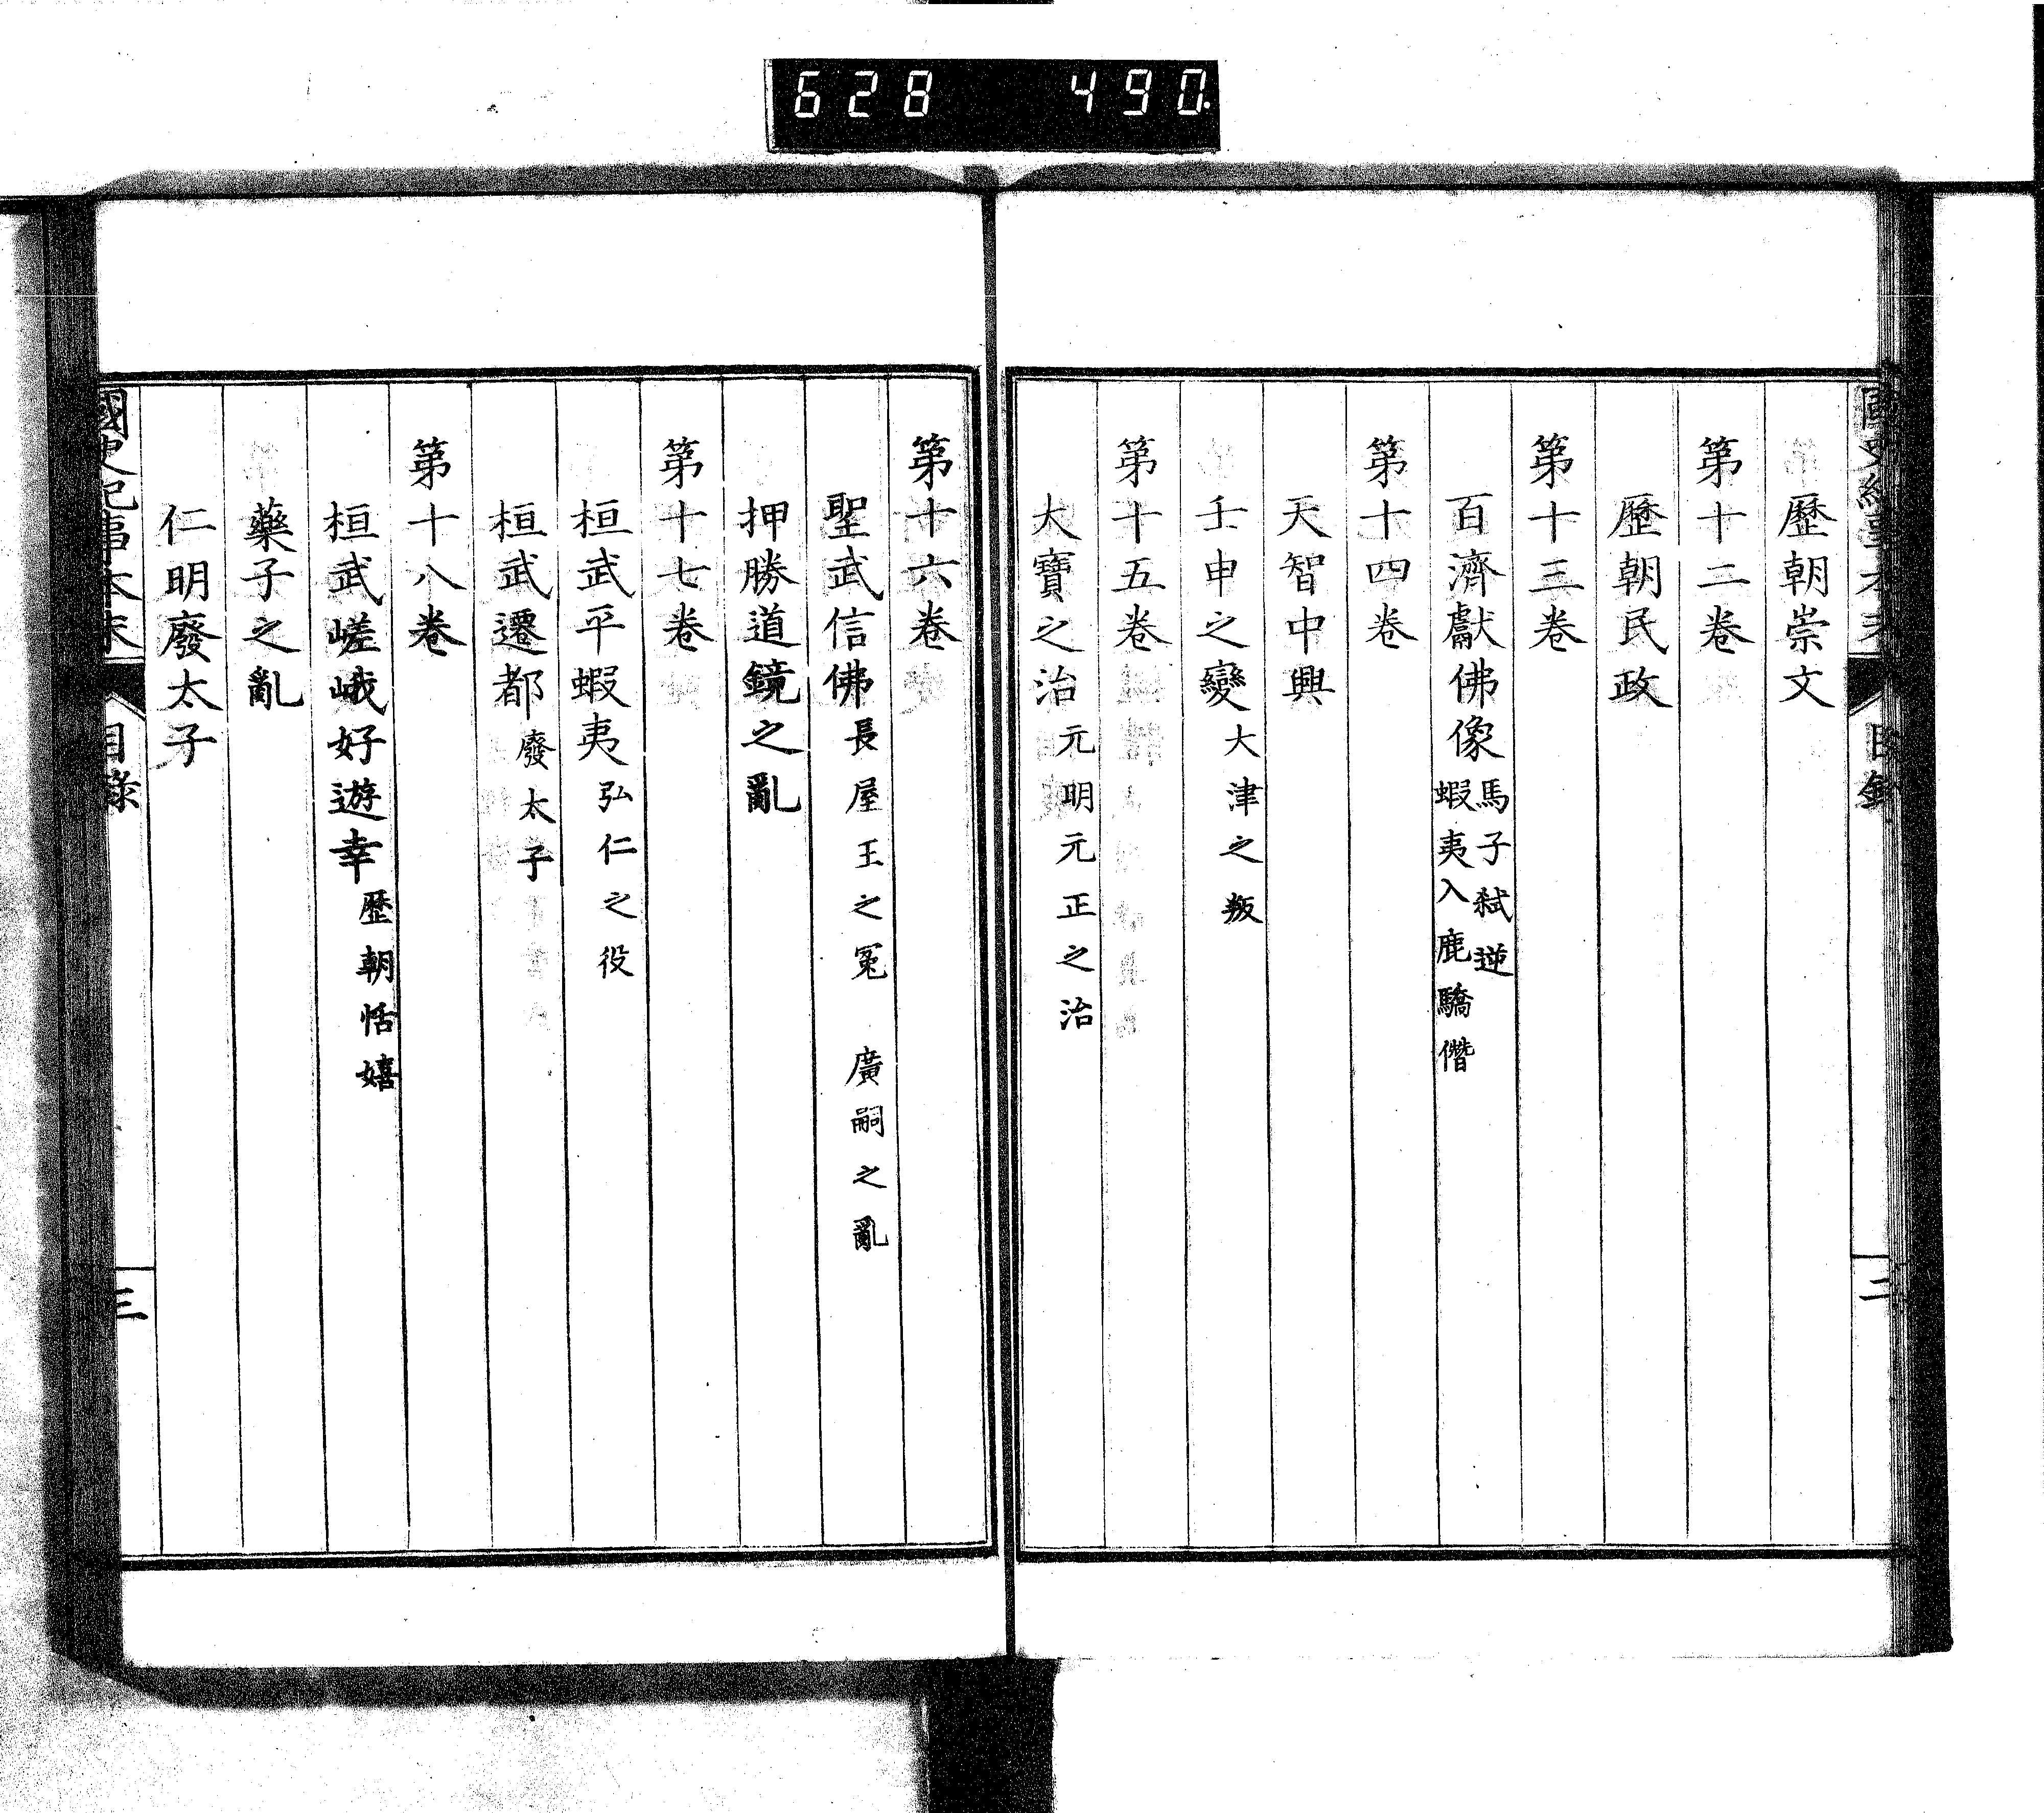 628 490.
國史紀事本末 目錄 二
歷朝崇文
第十二卷
歷朝民政
第十三卷
百濟獻佛像 馬子弑逆 蝦夷入鹿驕僭
第十四卷
天智中興
壬申之變 大津之叛
第十五卷
大寶之治 元明元正之治
第十六卷
聖武信佛 長屋王之冤 廣嗣之亂
押勝道鏡之亂
第十七卷
桓武平蝦夷 弘仁之役
桓武遷都 廢太子
第十八卷
桓武嵯峨好遊幸 歷朝恬嬉
藥子之亂
仁明廢太子
國史紀事本末 目錄 三